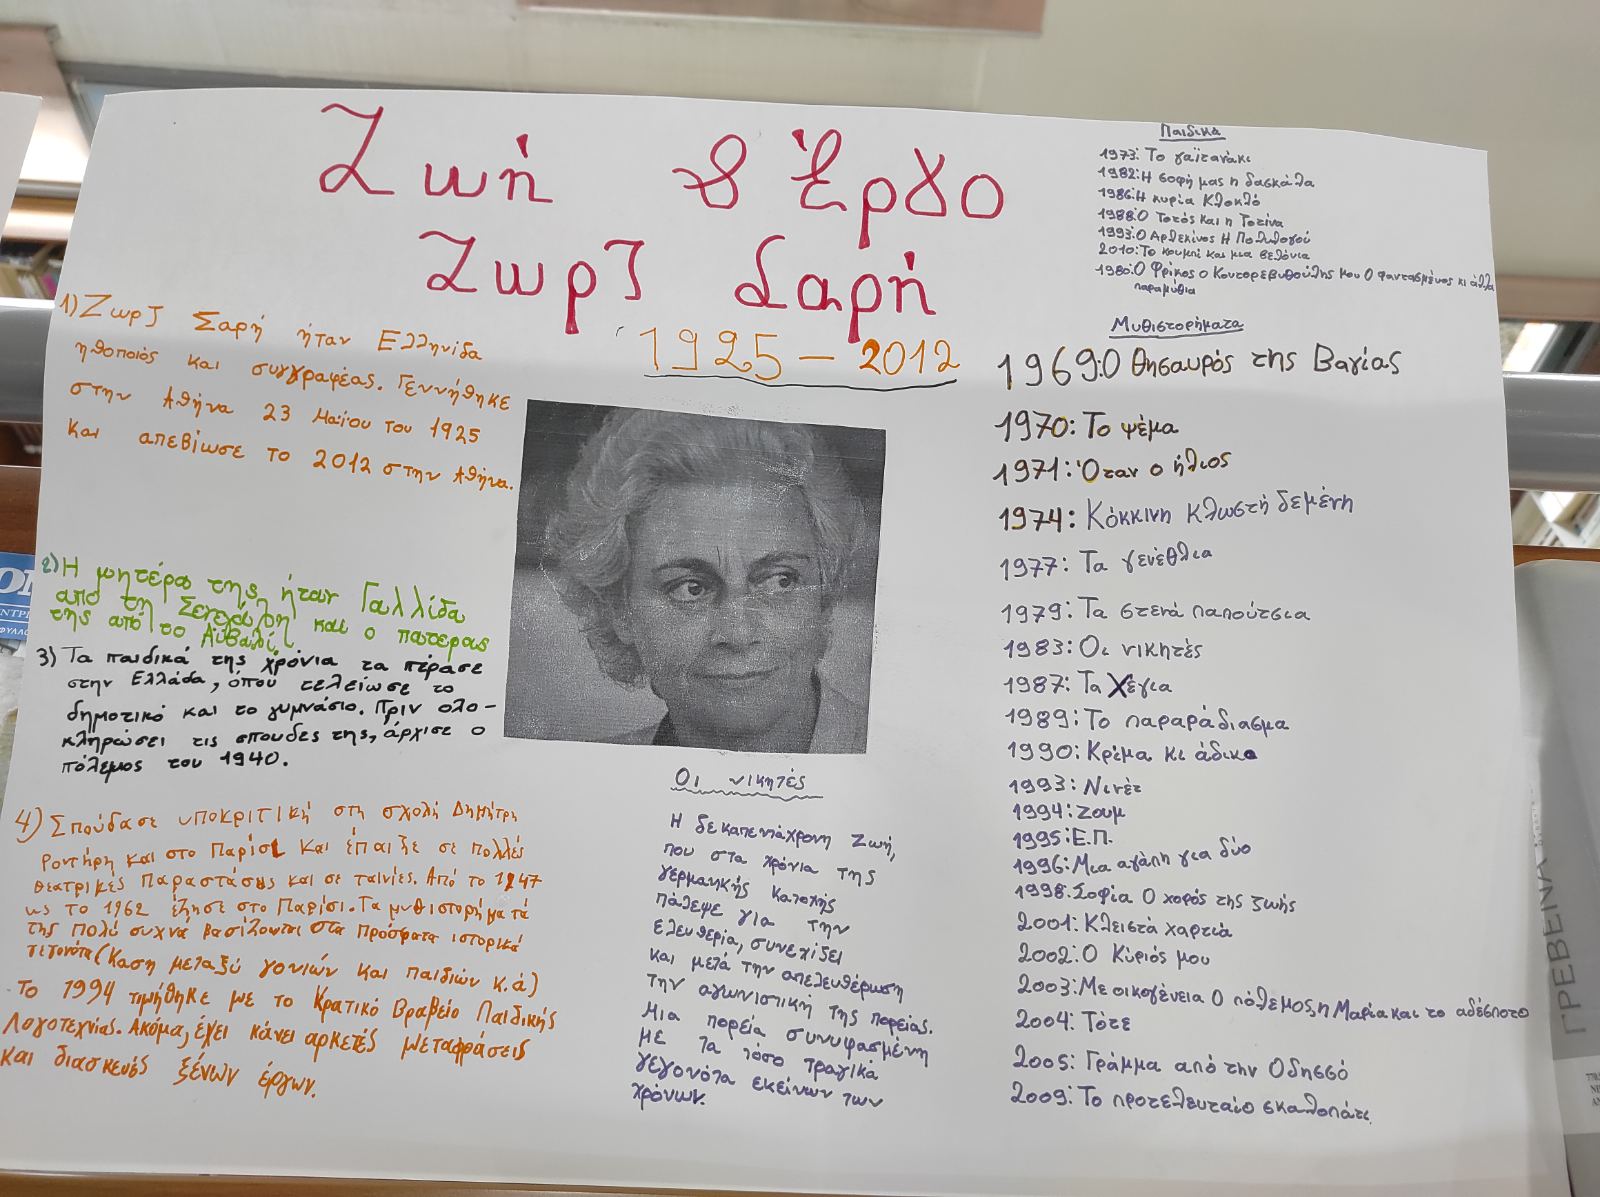 Ζωή & Έργο
Ζωρζ Σαρή
1925 – 2012
1) Ζωρζ Σαρή ήταν Ελληνίδα
ηθοποιός και συγγραφέας. Γεννήθηκε
στην Αθήνα 23 Μαΐου του 1925
και απεβίωσε το 2012 στην Αθήνα.
2) Η μητέρα της ήταν Γαλλίδα
από τη Σενεγάλη και ο πατερας
της από το Αϊβαλί.
3) Τα παιδικά της χρόνια τα πέρασε
στην Ελλάδα, όπου τελείωσε το
δημοτικό και το γυμνάσιο. Πριν ολο-
κληρώσει τις σπουδες της, άρχισε ο
πόλεμος του 1940.
4) Σπούδασε υποκριτική στη σχολή Δημήτρη
Ροντήρη και στο Παρίσι και έπαιξε σε πολλές
θεατρικές παραστάσεις και σε ταινίες. Από το 1947
ως το 1962 έζησε στο Παρίσι. Τα μυθιστορήματά
της πολύ συχνά βασίζονται στα πρόσφατα ιστορικά
γεγονότα (Κάση μεταξύ γονιών και παιδιών κ.ά)
Το 1994 τιμήθηκε με το Κρατικό Βραβείο Παιδικής
Λογοτεχνίας. Ακόμα, έχει κάνει αρκετές μεταφράσεις
και διασκευές ξένων έργων.
Οι νικητές
Η δεκαπεντάχρονη Ζωή,
που στα χρόνια της
γερμανικής Κατοχής
πάλεψε για την
ελευθερία, συνεχίζει
και μετά την απελευθέρωση
την αγωνιστική της πορείας.
Μια πορεία συνυφασμένη
με τα τόσο τραγικά
γεγονότα εκείνων των
χρόνων.
Παιδικά
1973: Το γαϊτανάκι
1982: Η σοφή μας η δασκάλα
1986: Η κυρία Κλοκλό
1988: Ο Τοτός και η Τοτίνα
1993: Ο Αρλεκίνος Η Πολυλογού
2010: Το κουμπί και μια βελόνια
1980: Ο Φρίκος ο Κοντορεβυθούλης μου Ο φαντασμένος κι άλλα
παραμύθια
Μυθιστορήματα
1969: Ο θησαυρός της Βαγίας
1970: Το ψέμα
1971: Όταν ο ήλιος
1974: Κόκκινη κλωστή δεμένη
1977: Τα γενέθλια
1979: Τα στενά παπούτσια
1983: Οι νικητές
1987: Τα Χέγια
1989: Το παραράδιασμα
1990: Κρίμα κι άδικο
1993: Νινέτ
1994: Ζουμ
1995: Ε.Π.
1996: Μια αγάπη για δύο
1998: Σοφία Ο χορός της ζωής
2001: Κλειστά χαρτιά
2002: Ο Κύριός μου
2003: Με οικογένεια Ο πόλεμος, η Μαρία και το αδέσποτο
2004: Τότε
2005: Γράμμα από την Οδησσό
2009: Το προτελευταίο σκαλοπάτι
ΓΡΕΒΕΝΑ